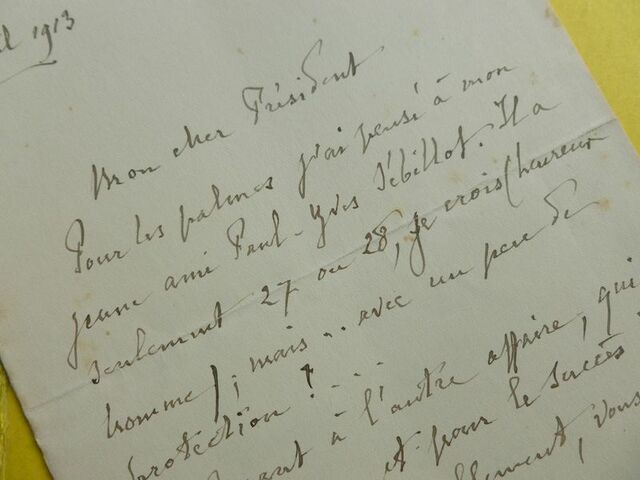 1913
Mon cher Président
Pour les palmes j'ai pensé à mon
jeune ami Paul-Yves Sébillot. Il a
seulement 27 ou 28, je crois (heureux
homme), mais .. avec un peu de
protection ! ...
à l'autre affaire, qui
et pour le succès
vous